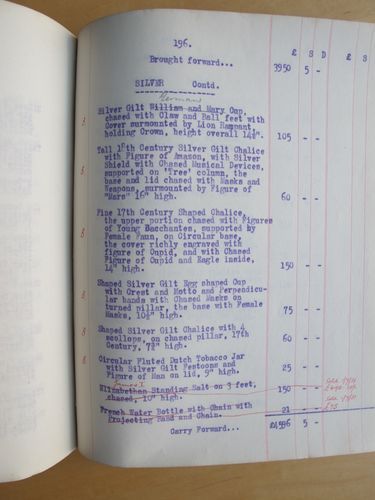 196.
£ S D £ S
Brought forward... 3950 5 -
SILVER Contd.
German
Silver Gilt William and Mary Cup,
chased with Claw and Ball feet with
Cover surmounted by Lion Rampant,
holding Crown, height overall 14½". 105 - -
Tall 18th Century Silver Gilt Chalice
with Figure of Amazon, with Silver
Shield with Chased Musical Devices,
supported on 'Tree' column, the
base and lid chased with Masks and
Weapons, surmounted by Figure of
"Mars" 16" high. 60 - -
Fine 17th Century Shaped Chalice,
the upper portion chased with Figures
of Young Bacchantes, supported by
Female Faun, on Circular base,
the cover richly engraved with
figure of Cupid, and with Chased
Figure of Cupid and Eagle inside,
14" high. 150 - -
Shaped Silver Gilt Egg shaped Cup
with Crest and Motto and Perpendicu-
lar bands with Chased Masks on
turned pillar, the base with Female
Masks, 10½" high. 75 - -
Shaped Silver Gilt Chalice with 4
scollops, on chased pillar, 17th
Century, 7¾" high. 25 - -
Circular Fluted Dutch Tobacco Jar
with Silver Gilt Festoons and
Figure of Man on lid, 9" high. 60 - -
James I
Elizabethan Standing Salt on 3 feet,
chased, 10" high. 150 - -
French Water Bottle with Chain with
Projecting Band and Chain. 21 - -
Carry Forward... £4,596 5 -